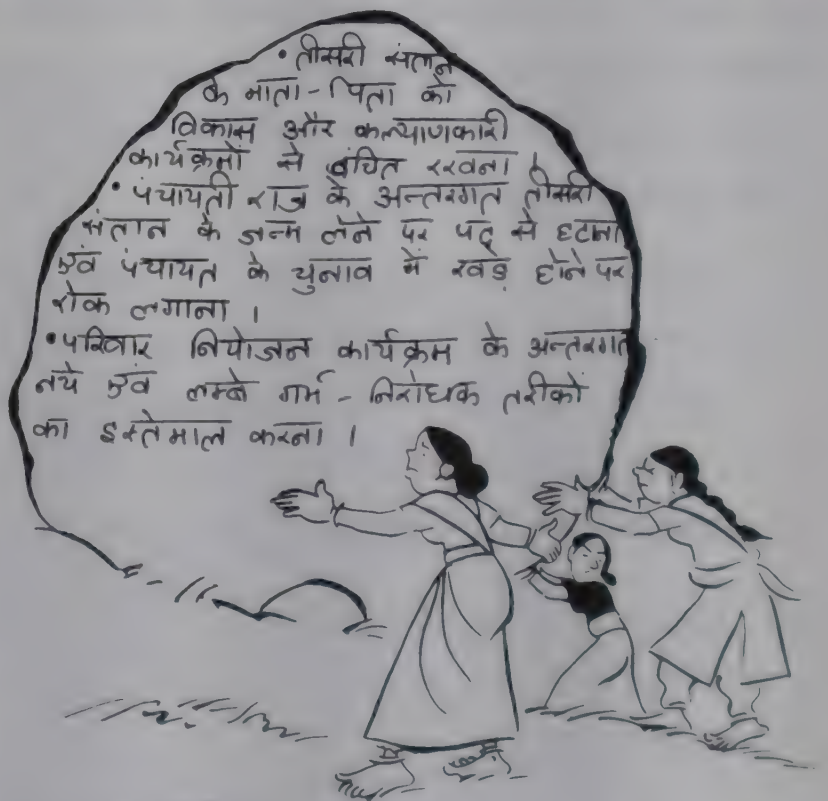 • तीसरी संतान
के माता-पिता को
विकास और कल्याणकारी
कार्यक्रमों से वंचित रखना ।
• पंचायती राज के अन्तरगत तीसरी
संतान के जन्म लेने पर पद से हटाना
एवं पंचायत के चुनाव में खड़े होने पर
रोक लगाना ।
• परिवार नियोजन कार्यक्रम के अन्तरगत
नये एवं लम्बे गर्भ - निरोधक तरीको
का इस्तेमाल करना ।